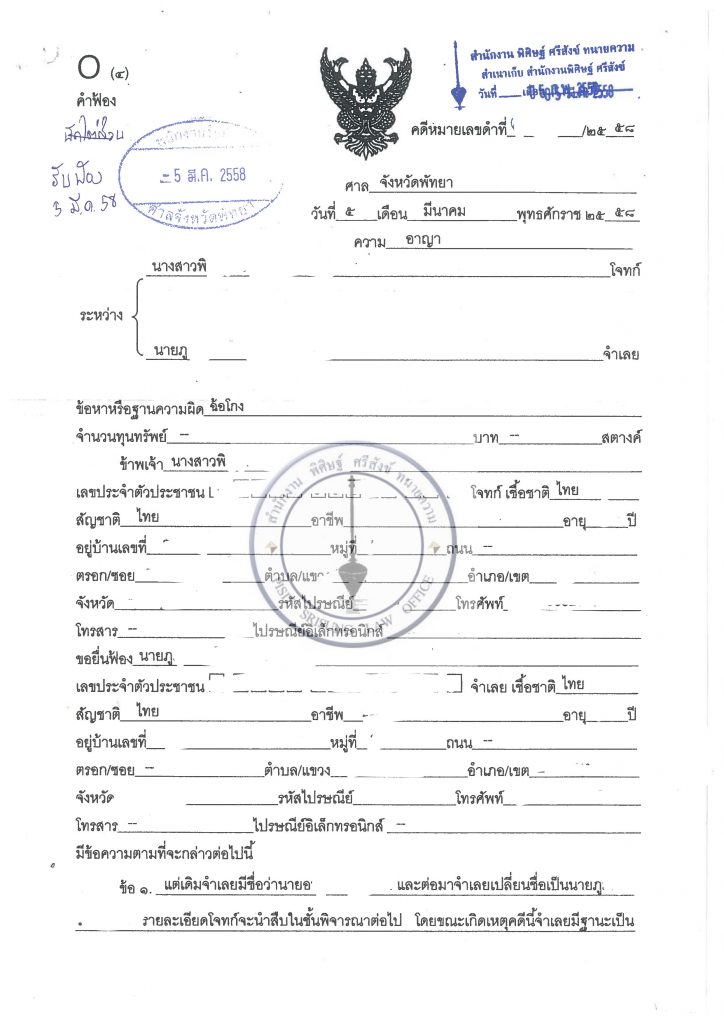 สำนักงาน พิศิษฐ์ ศรีสังข์ ทนายความ
สำเนาเก็บ สำนักงานพิศิษฐ์ ศรีสังข์
วันที่
O (๔)
คำฟ้อง
คดีหมายเลขดำที่ /๒๕ ๕๘
รับฟ้อง
5 มี.ค. 58
- 5 มี.ค. 2558
ศาลจังหวัดพัทยา
ศาล จังหวัดพัทยา
วันที่ ๕ เดือน มีนาคม พุทธศักราช ๒๕ ๕๘
ความ อาญา
นางสาวพิ โจทก์
ระหว่าง
นายภู จำเลย
ข้อหาหรือฐานความผิด ฉ้อโกง
จำนวนทุนทรัพย์ -- บาท -- สตางค์
ข้าพเจ้า นางสาวพิ
เลขประจำตัวประชาชน โจทก์ เชื้อชาติ ไทย
สัญชาติ ไทย อาชีพ อายุ ปี
อยู่บ้านเลขที่ หมู่ที่ ถนน --
ตรอก/ซอย ตำบล/แขว อำเภอ/เขต
จังหวัด รหัสไปรษณีย์ โทรศัพท์
โทรสาร -- ไปรษณีย์อิเล็กทรอนิกส์
ขอยื่นฟ้อง นายภู
เลขประจำตัวประชาชน จำเลย เชื้อชาติ ไทย
สัญชาติ ไทย อาชีพ อายุ ปี
อยู่บ้านเลขที่ หมู่ที่ ถนน --
ตรอก/ซอย -- ตำบล/แขวง อำเภอ/เขต
จังหวัด รหัสไปรษณีย์ โทรศัพท์
โทรสาร -- ไปรษณีย์อิเล็กทรอนิกส์ --
มีข้อความตามที่จะกล่าวต่อไปนี้
ข้อ ๑. แต่เดิมจำเลยมีชื่อว่านายอ และต่อมาจำเลยเปลี่ยนชื่อเป็นนายภู
รายละเอียดโจทก์จะนำสืบในชั้นพิจารณาต่อไป โดยขณะเกิดเหตุคดีนี้จำเลยมีฐานะเป็น
สำนักงาน พิศิษฐ์ ศรีสังข์ ทนายความ
LAW OFFICE